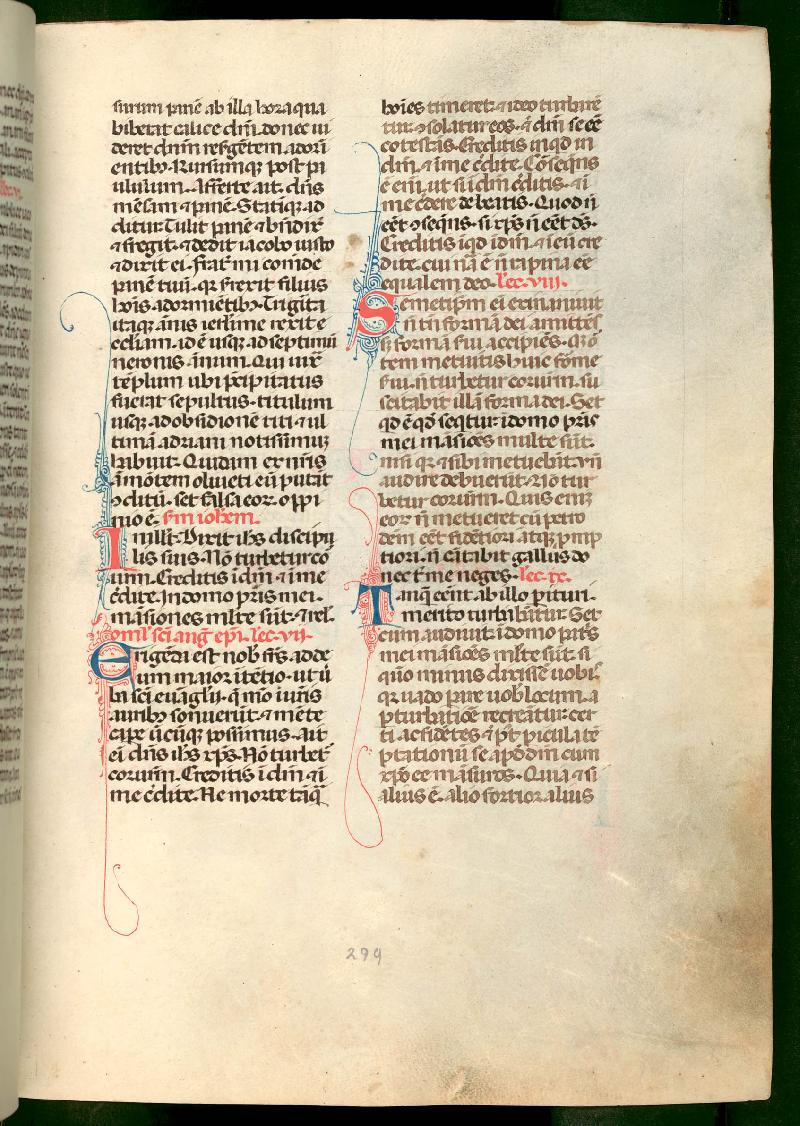 surum panē ab illa hora qua
biberat calicē dn̄i. donec ui
deret dn̄m resurgētem a dormi
entibꝫ. Rursumqꝫ post pau
ululum. Afferte ait dn̄s
mēsam ⁊ panē. Statimqꝫ ad
ditur. Tulit panē ⁊ bn̄dixit
⁊ fregit. ⁊ dedit iacobo iusto
⁊ dixit ei. Frat̄ mi comede
panē tuū. qꝛ surrexit filius
hoīs a dormiētibꝫ. Triginta
itaqꝫ ānis ierlime rexit e
ccl̄iam. id ē usqꝫ ad septimū
neronis ānum. Qui iuxᵃ
tēplum ubi p̄cipitatus
fuerat sepultus. titulum
usqꝫ ad obsidionē titi ⁊ ul
timā adriani notissimuꝫ
habuit. Quidam ex nr̄is
ī mōtem oliueti eū putāt
ꝯditū. set falsa eoꝝ oppi
nio ē. s̄m ioh̄em.
In illo t̄. Dixit ih̄s discipu
lis suis. Nō turbetur co
r ur̄m. Creditis ī dm̄ ⁊ ī me
c̄dite. In domo pris mei.
māsiones mlte sūt. ⁊ rel.
Omīl. sc̄i auḡ. ep̄i. lec. vii.
Erigēda est nob̄ frs̄ ad de
um maior ītētio. ut ū
ba sc̄i euāgl̄ii. q̄ mo iur̄is
auribꝫ sonuerūt. ⁊ mēte
cape ūcūqꝫ possimus. Ait
ei dn̄s ih̄s xp̄s. Nō turbet᷑
cor ur̄m. Creditis ī dm̄ ⁊ ī
me c̄dite. Ne morte tāq̄
hoīes timerēt. ⁊ ideo turbarē
tur. ꝯsolatur eos. ⁊ dm̄ se ēē
cōtestās. Creditis inqd in
dm̄. ⁊ ī me c̄dite. Cōseqn̄s
ē eīm. ut si ī dm̄ c̄ditis. ⁊ ī
me c̄dere debeatis. Quod n̄
ēēt ꝯseqn̄s. si xp̄s n̄ ēēt ds̄.
Creditis īqd ī dm̄. ⁊ ī eū cre
dite. cui nāᵃ ē n̄ rapina ēē
equalem deo. lec. viii.
Semetip̄m ei exinaniuit
n̄ tn̄ formā dei amittēs
sꝫ formā s̄ui accipiēs. Mō
tem metuitis huic forme
s̄ui. n̄ turbetur cor ur̄m. su
scitabit illā forma dei. Set
qd ē qd seqtur. ī domo pris
mei māsiōes multe sūt.
nisi qꝛ ⁊ sibi metuebāt. vn̄
audire debuerūt. Nō tur
betur cor ur̄m. Quis eniꝫ
eoꝝ n̄ metueret cū petro
dem̄ ēēt fidētiori atqꝫ pmp
tiori. n̄ cātabit gallus do
nec t̄ me neges. lec. ix.
Tanqꝫ eēnt ab illo pituri.
merito turbabātur. Set
cum audiūt. ī domo patrs
mei māsiōes mlte sūt. si
quo minus dixissē uobis.
qꝛ uado pare uob locum. a
pturbatiōe recreātur. cer
ti. ac fidētes ⁊ pt picula tē
ptationū se apd dm̄ cum
xpo ēē māsuros. Quia ⁊ si
alius ē. alio fortior. alius
299